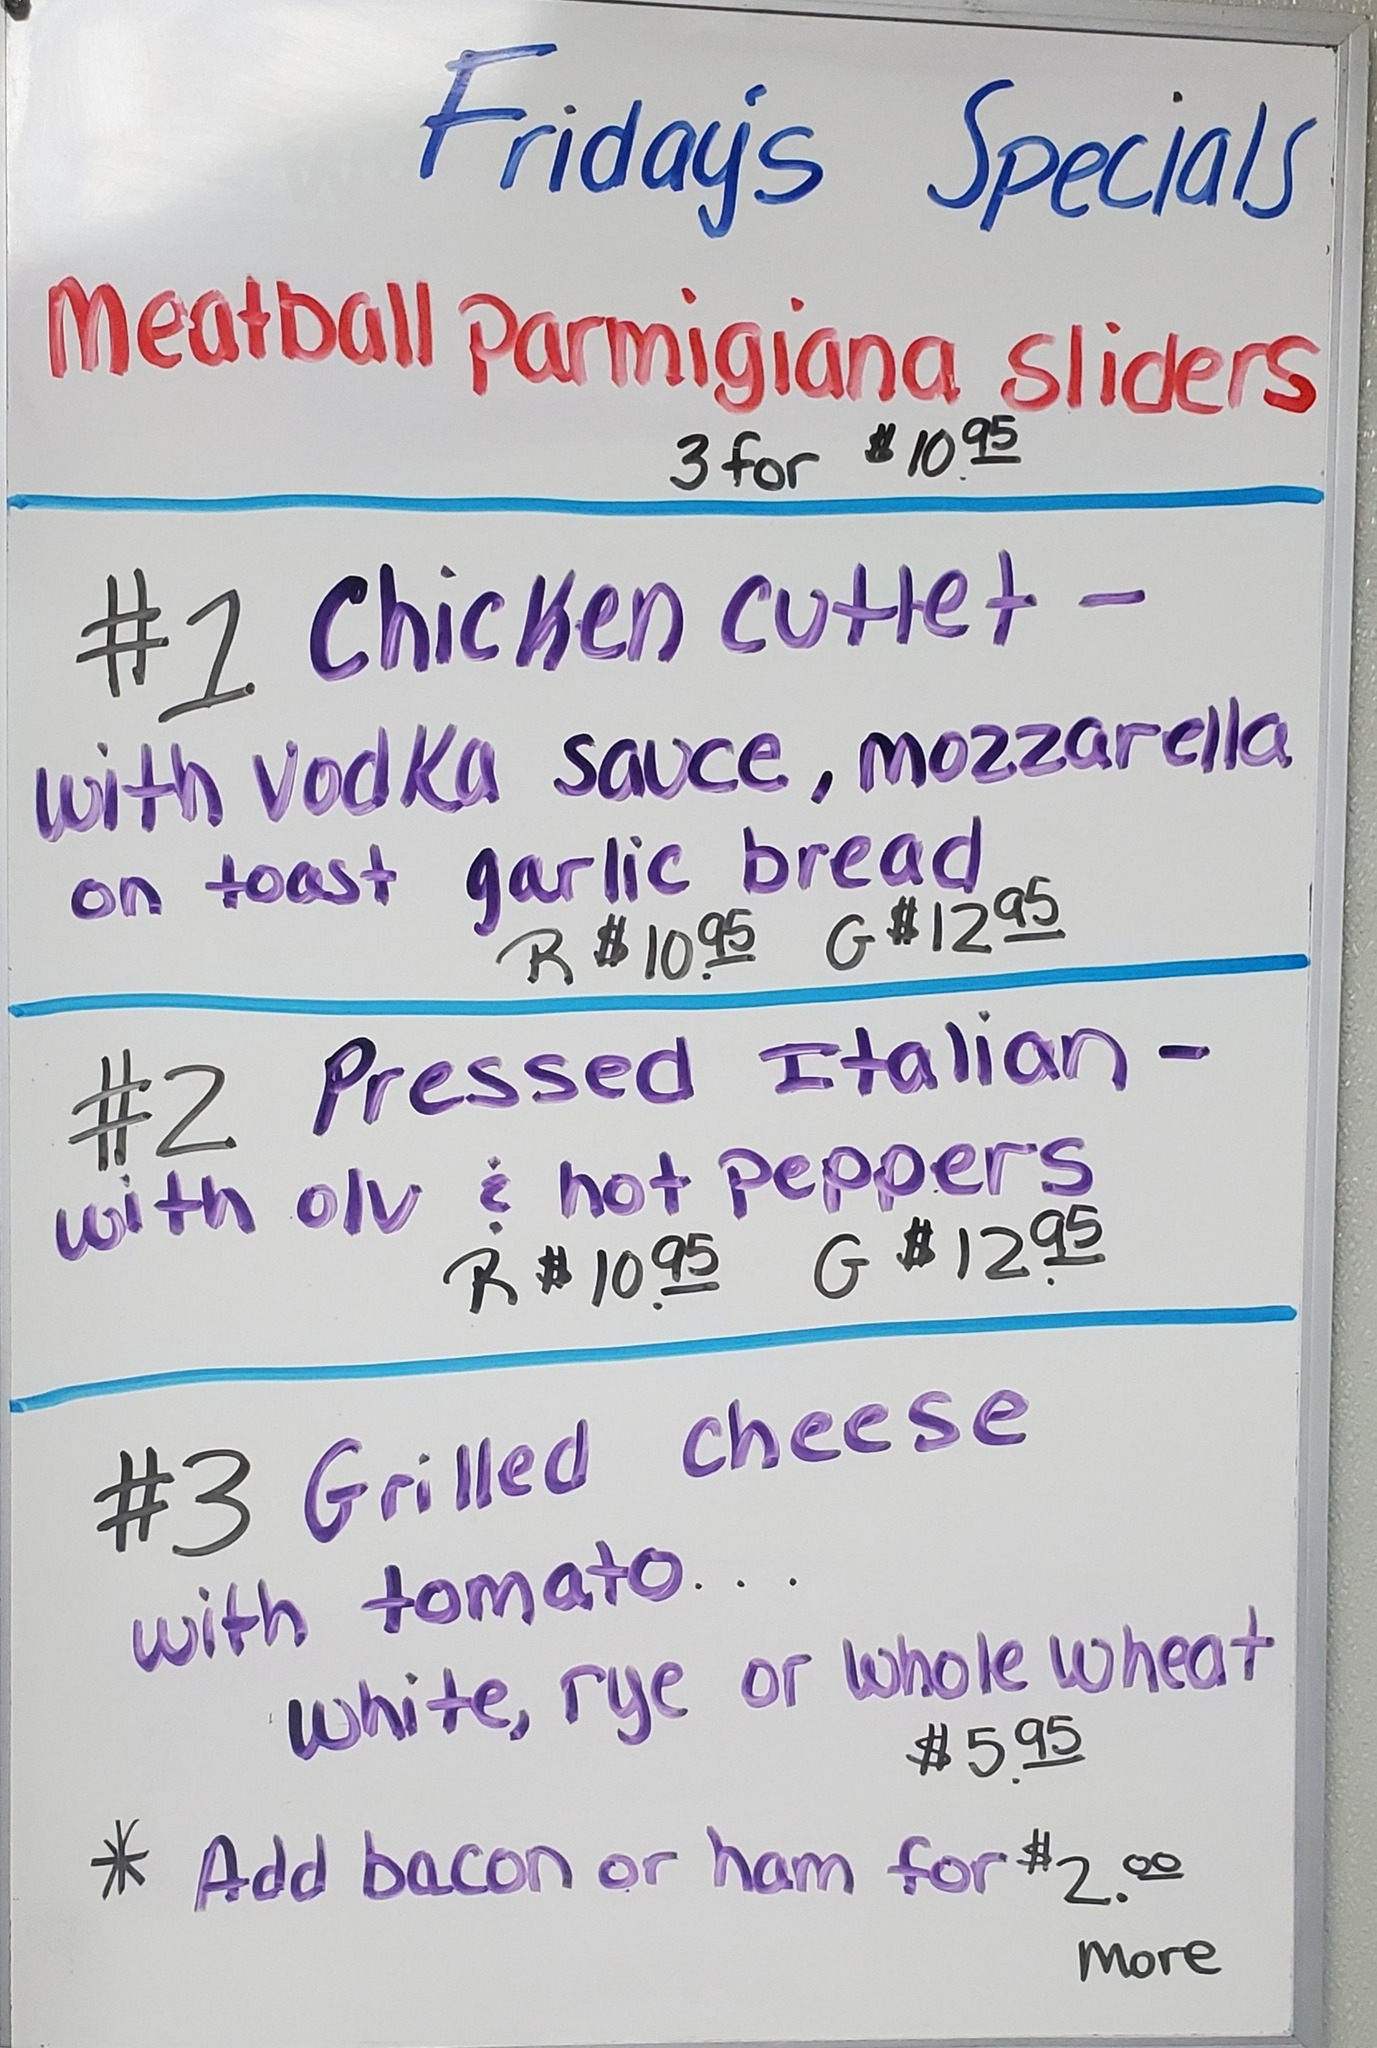 Friday's Specials
Meatball Parmigiana Sliders
3 for $10.95
#1 Chicken Cutlet -
with vodka sauce, mozzarella
on toast garlic bread
R $10.95 G $12.95
#2 Pressed Italian -
with o/v & hot peppers
R $10.95 G $12.95
#3 Grilled cheese
with tomato...
white, rye or whole wheat
$5.95
* Add bacon or ham for $2.00
more